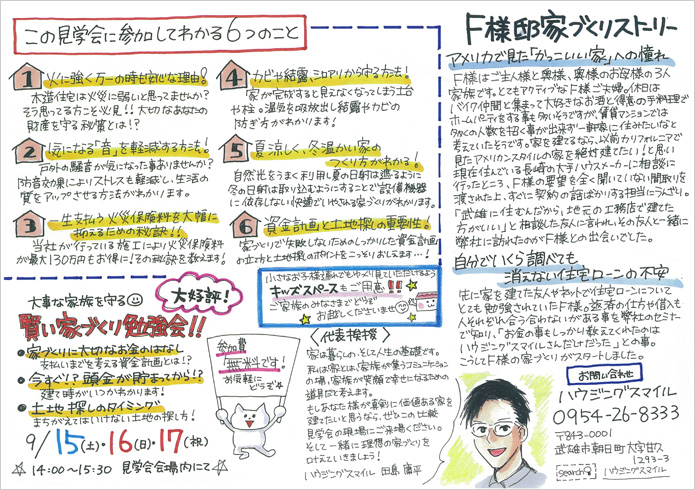 この見学会に参加してわかる6つのこと
1 火に強く万一の時も安心な理由!
木造住宅は火災に弱いと思ってませんか?
そう思ってる方こそ必見!!大切なあなたの
財産を守る秘策とは!?
2 気になる「音」を軽減する方法!
戸外の騒音が気になった事ありませんか?
防音効果によりストレスも軽減し、生活の
質をアップさせる方法がわかります。
3 一生支払う火災保険料を大幅に
抑えるための秘訣!!
当社が行っている施工により火災保険料
が最大130万もお得に!その秘訣を教えます!
4 カビや結露、シロアリから守る方法!
家が完成すると見えなくなってしまう土台
や柱。湿気を吸放出し結露やカビの
防ぎ方がわかります!
5 夏涼しく、冬温かい家の
つくり方がわかる!
自然光をうまく利用し夏の日射は遮るように
冬の日射は取り込むようにすることで設備機器
に依存しない快適でいやされる家づくりがわかります。
6 資金計画と土地探しの重要性!
家づくりで失敗しないためのしっかりした資金計画
の立方と土地探しのポイントをこっそりおします…!
小さなお子様連れでもゆっくり見ていただけるよう
キッズスペースもご用意!!
ご家族のみなさまでどうぞ
お越しくださいませ
大事な家族を守る
大好評!
賢い家づくり勉強会!!
・家づくりに大切なお金のはなし
支払いまでを考える資金計画とは!?
・今すぐ!?頭金が貯まってから!?
建て時がいつかわかります!
・土地探しのタイミング
まちがえてはいけない土地の探し方!
9/15(土)・16(日)・17(祝)
14:00〜15:30 見学会会場内にて
参加費
「無料です!
お気軽に
どうぞ
〈代表挨拶〉
家は暮らしの、そして人生の基礎です。
私は家とは、家族が集うコミュニケーション
の場、家族が笑顔で幸せになるための
道具だと考えます。
もしあなた様が真剣に価値ある家を
建てたいと思うなら、ぜひこの比較
見学会の現場にご来場ください。
そして一緒に理想の家づくりを
叶えていきましょう!
ハウジングスマイル 田島
F様邸家づくりストーリー
アメリカで見た「かっこいい家」への憧れ
F様はご主人様と奥様、奥様のお母様の3人
家族です。とてもアクティブなF様ご夫婦。休日は
バイク仲間と集まって大好きなお酒と得意の手料理で
ホームパティをする事も多いそうですが、賃貸マンションでは
多くの人数を招く事が出来ず一軒家に住みたいなと
考えていたそうです。家を建てるなら、以前カリフォルニアで
見たアメリカンスタイルの家を絶対建てたい!と思い
現在住んでいる長崎の大手ハウスメーカーに相談に
行ったところ、F様の要望を全く聞いていない間取りを
渡された上、すぐに契約の話ばかりする担当にうんざり。
「武雄に住むんだから、地元の工務店で建てた
方がいい」と相談した友人に言われ、その友人と一緒に
弊社に訪れたのがF様との出会いでした。
自分でいくら調べても
消えない住宅ローンの不安
先に家を建てた友人やネットで住宅ローンについて
とても勉強されていたF様。返済の仕方や借入も
人それぞれ合う合わないがある事を弊社のセミナー
で知り、「お金の事もしっかり教えてくれたのは
ハウジングスマイルさんだけだった」との事。
こうしてF様の家づくりがスタートしました。
お問い合わせ
ハウジングスマイル
0954-26-8333
〒843-0001
武雄市朝日町大字甘久
1293-3
search ハウジングスマイル